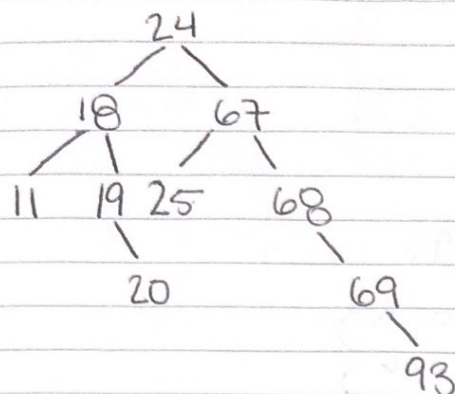 24
18 67
11 19 25 68
20 69
93